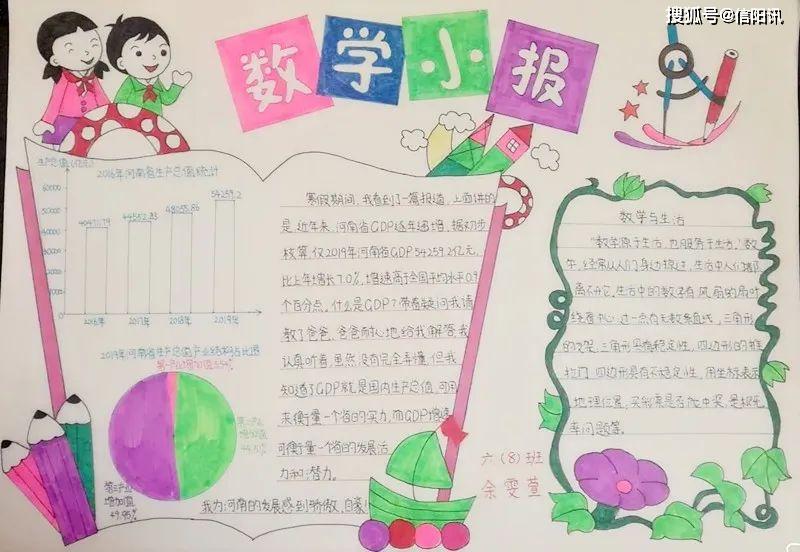 搜狐号@信阳讯
数学小报
生产总值(亿元)
2016年河南省生产总值统计
60000
50000
40000
30000
20000
10000
0
40471.79
44552.83
48055.86
54259.2
2016年
2017年
2018年
2019年
2019年河南省生产总值产业结构占比图
第一产业增加值8.54%
第二产业
增加值
第三产业
增加值
寒假期间,我看到了一篇报道,上面讲的
是,近年来,河南省GDP逐年递增,据初步
核算,仅2019年河南省GDP 54259.2亿元,
比上年增长7.0%,增速高于全国平均水平0.9
个百分点。什么是GDP?带着疑问我请
教了爸爸,爸爸耐心地给我解答,我
认真听着,虽然没有完全弄懂,但我
知道了GDP就是国内生产总值,可用
来衡量一个省的实力,而GDP增速
可衡量一个省的发展活
力和潜力。
我为河南的发展感到骄傲,自豪!
六(8)班
余雯萱
数学与生活
"数学源于生活,也服务于生活,"数
学,经常从人们身边掠过,生活中人们
离不开它。生活中的数学有风扇的扇叶
绕着中心,过一点有无数条直线,三角形
的支架,三角形具有稳定性,四边形的推
拉门,四边形具有不稳定性,用坐标表示
地理位置,买彩票是否能中奖,是概
率问题等。